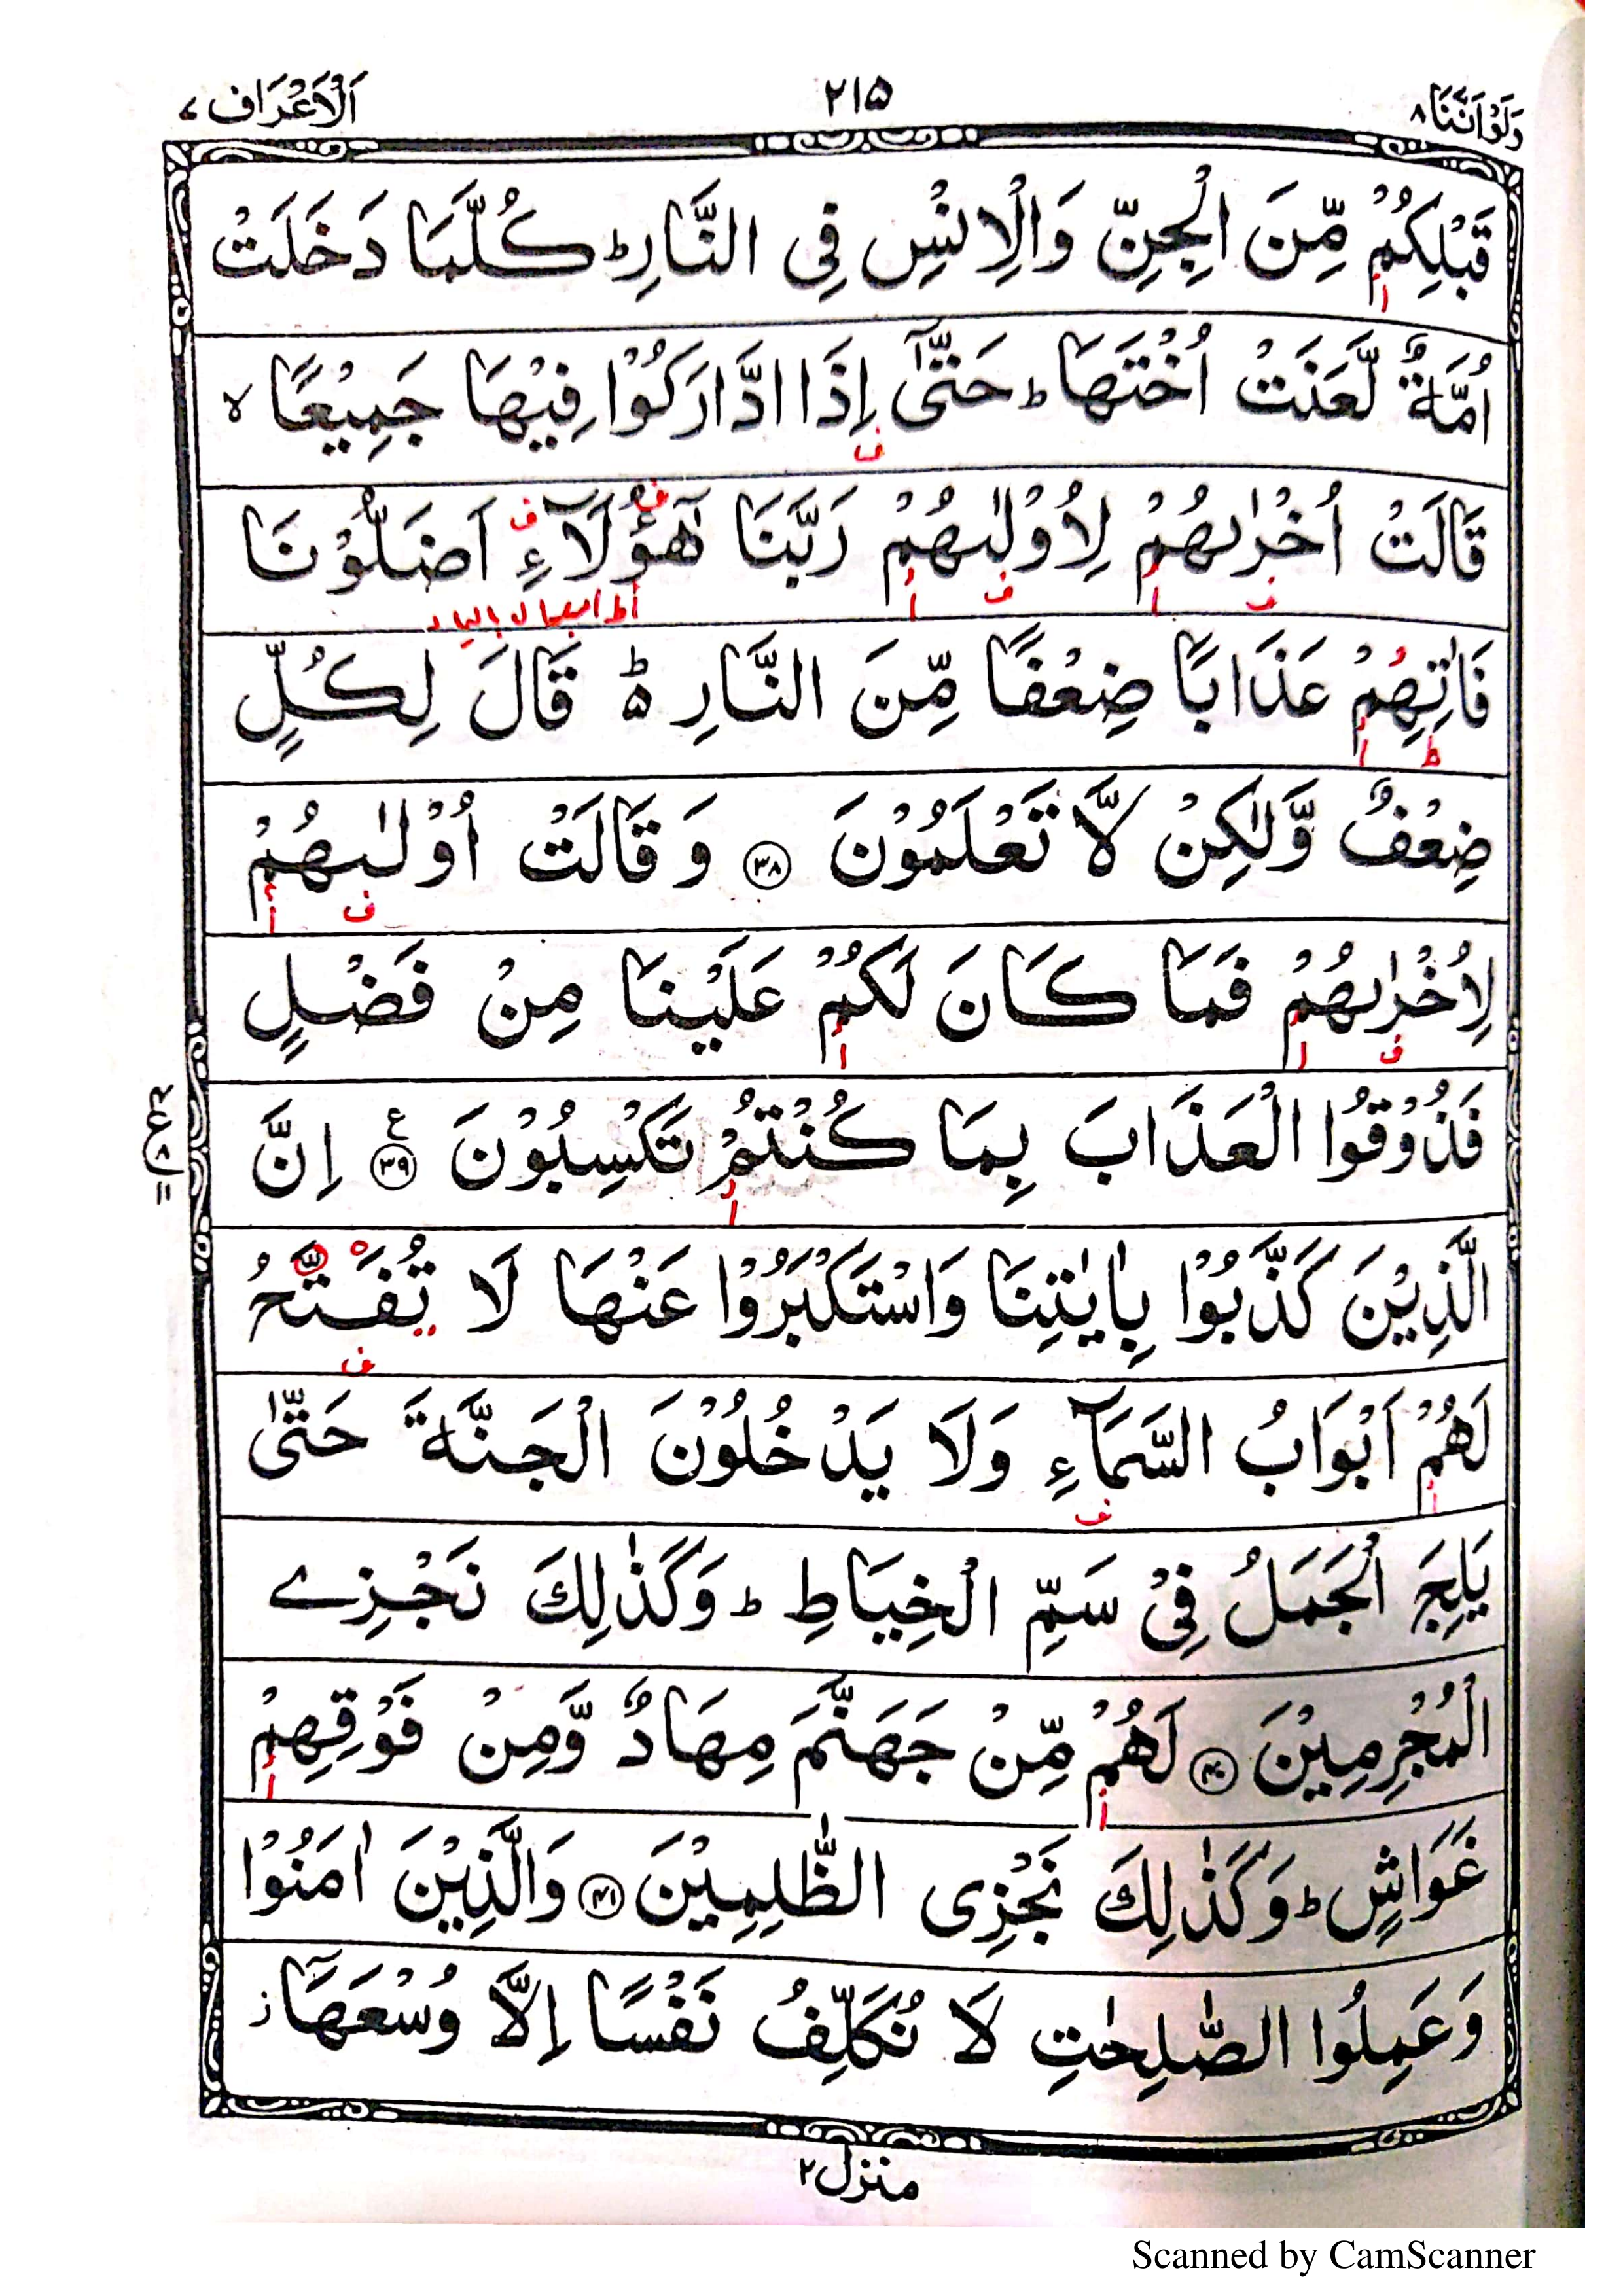 وَلَوْاَنَّنَا ٨
٢١٥
اَلْاَعْرَاف ٧
قَبْلِكُمْ مِّنَ الْجِنِّ وَالْاِنْسِ فِی النَّارِ ؕ كُلَّمَا دَخَلَتْ
اُمَّةٌ لَّعَنَتْ اُخْتَهَا ؕ حَتّٰۤى اِذَا ادَّارَكُوْا فِیْهَا جَمِیْعًا ۙ
قَالَتْ اُخْرٰىهُمْ لِاُوْلٰىهُمْ رَبَّنَا هٰۤؤُلَآءِ اَضَلُّوْنَا
فَاٰتِهِمْ عَذَابًا ضِعْفًا مِّنَ النَّارِ ؕ۬ قَالَ لِكُلٍّ
ضِعْفٌ وَّلٰكِنْ لَّا تَعْلَمُوْنَ ﴿٣٨﴾ وَ قَالَتْ اُوْلٰىهُمْ
لِاُخْرٰىهُمْ فَمَا كَانَ لَكُمْ عَلَیْنَا مِنْ فَضْلٍ
فَذُوْقُوا الْعَذَابَ بِمَا كُنْتُمْ تَكْسِبُوْنَ ﴿٣٩﴾ ع اِنَّ
الَّذِیْنَ كَذَّبُوْا بِاٰیٰتِنَا وَاسْتَكْبَرُوْا عَنْهَا لَا تُفَتَّحُ
لَهُمْ اَبْوَابُ السَّمَآءِ وَلَا یَدْخُلُوْنَ الْجَنَّةَ حَتّٰى
یَلِجَ الْجَمَلُ فِیْ سَمِّ الْخِیَاطِ ؕ وَكَذٰلِكَ نَجْزِے
الْمُجْرِمِیْنَ ﴿٤٠﴾ لَهُمْ مِّنْ جَهَنَّمَ مِهَادٌ وَّمِنْ فَوْقِهِمْ
غَوَاشٍ ؕ وَكَذٰلِكَ نَجْزِی الظّٰلِمِیْنَ ﴿٤١﴾ وَالَّذِیْنَ اٰمَنُوْا
وَعَمِلُوا الصّٰلِحٰتِ لَا نُكَلِّفُ نَفْسًا اِلَّا وُسْعَهَاۤ ؗ
منزل ٢
Scanned by CamScanner